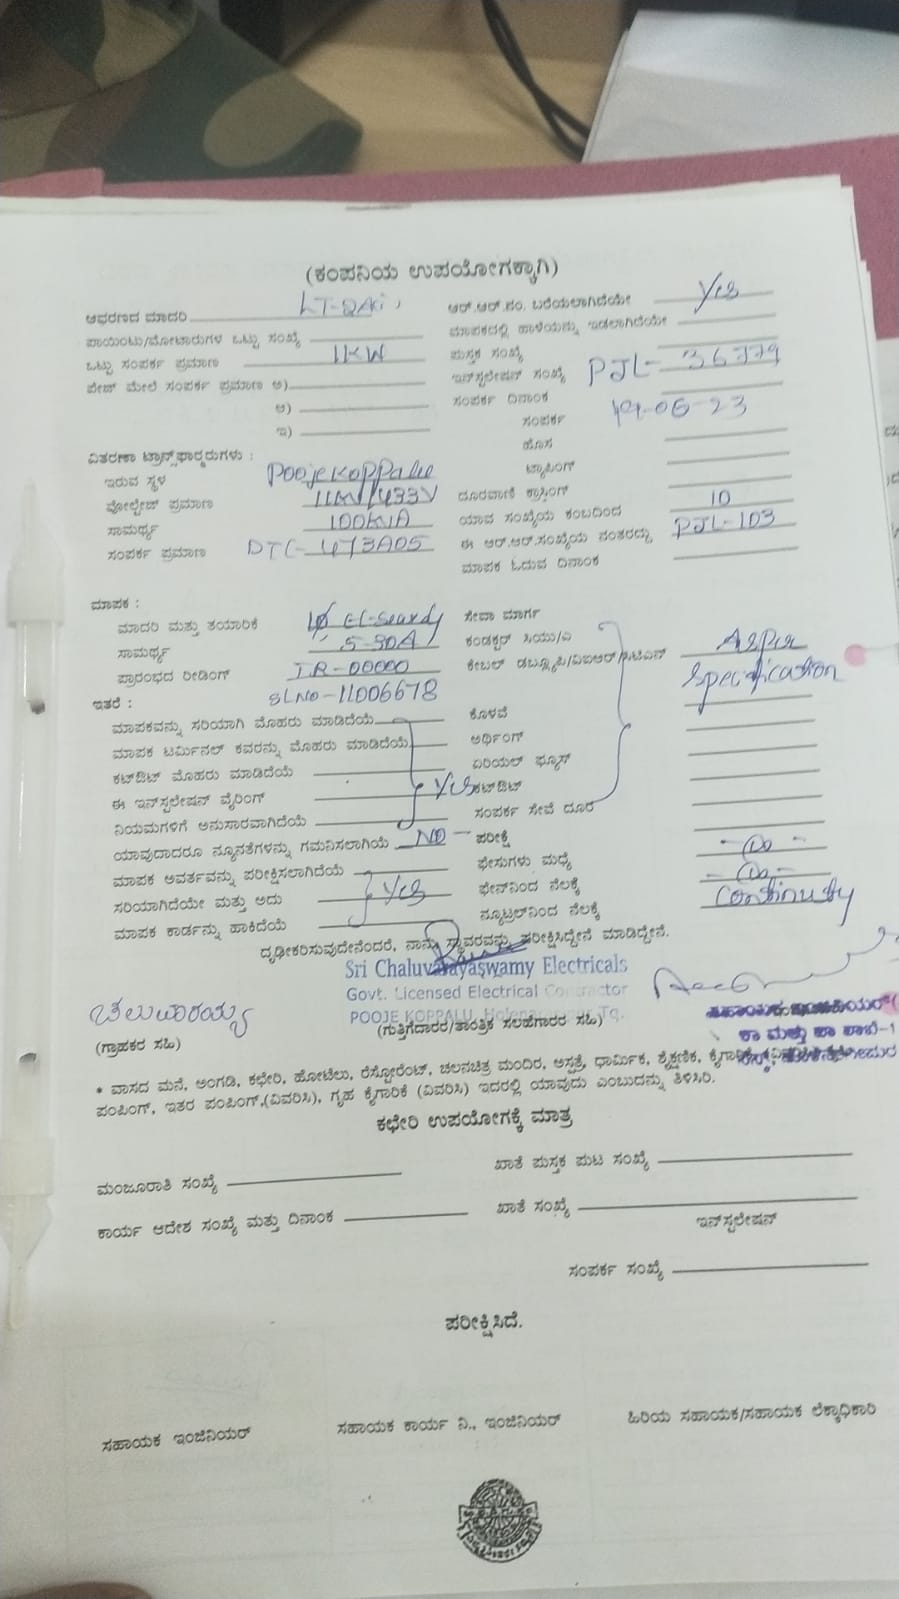 (ಕಂಪನಿಯ ಉಪಯೋಗಕ್ಕಾಗಿ)
ಆವರಣದ ಮಾದರಿ
ಪಾಯಿಂಟು/ಮೋಟಾರುಗಳ ಒಟ್ಟು ಸಂಖ್ಯೆ
ಒಟ್ಟು ಸಂಪರ್ಕ ಪ್ರಮಾಣ 1KW
ಪೇಜ್ ಮೇಲೆ ಸಂಪರ್ಕ ಪ್ರಮಾಣ ಅ)
ಆ)
ಇ)
ವಿತರಣಾ ಟ್ರಾನ್ಸ್‌ಫಾರ್ಮರುಗಳು :
ಇರುವ ಸ್ಥಳ PoojeKoppalu
ವೋಲ್ಟೇಜ್ ಪ್ರಮಾಣ 11KV/433V
ಸಾಮರ್ಥ್ಯ 100KVA
ಸಂಪರ್ಕ ಪ್ರಮಾಣ DTC- 473A05
ಆರ್.ಆರ್.ನಂ. ಬರೆಯಲಾಗಿದೆಯೇ Yes
ಮಾಪಕದಲ್ಲಿ ಹಾಳೆಯನ್ನು ಇಡಲಾಗಿದೆಯೇ
ಪುಸ್ತಕ ಸಂಖ್ಯೆ
ಇನ್‌ಸ್ಟಲೇಷನ್ ಸಂಖ್ಯೆ PJL- 36779
ಸಂಪರ್ಕ ದಿನಾಂಕ 19-06-23
ಸಂಪರ್ಕ
ಹೊಸ
ಟ್ಯಾಪಿಂಗ್
ದೂರವಾಣಿ ಕ್ರಾಸಿಂಗ್
ಯಾವ ಸಂಖ್ಯೆಯ ಕಂಬದಿಂದ 10
ಈ ಆರ್.ಆರ್.ಸಂಖ್ಯೆಯ ನಂತರದ್ದು PJL-103
ಮಾಪಕ ಓದುವ ದಿನಾಂಕ
ಮಾಪಕ :
ಮಾದರಿ ಮತ್ತು ತಯಾರಿಕೆ
ಸಾಮರ್ಥ್ಯ 5-30A
ಪ್ರಾರಂಭದ ರೀಡಿಂಗ್ IR-00000
ಇತರೆ : SLNO-11006678
ಮಾಪಕವನ್ನು ಸರಿಯಾಗಿ ಮೊಹರು ಮಾಡಿದೆಯೆ
ಮಾಪಕ ಟರ್ಮಿನಲ್ ಕವರನ್ನು ಮೊಹರು ಮಾಡಿದೆಯೆ
ಕಟ್‌ಔಟ್ ಮೊಹರು ಮಾಡಿದೆಯೆ
ಈ ಇನ್‌ಸ್ಟಲೇಷನ್ ವೈರಿಂಗ್ Yes
ನಿಯಮಗಳಿಗೆ ಅನುಸಾರವಾಗಿದೆಯೆ
ಯಾವುದಾದರೂ ನ್ಯೂನತೆಗಳನ್ನು ಗಮನಿಸಲಾಗಿಯೆ NO
ಮಾಪಕ ಅವರ್ತವನ್ನು ಪರೀಕ್ಷಿಸಲಾಗಿದೆಯೆ
ಸರಿಯಾಗಿದೆಯೇ ಮತ್ತು ಅದು Yes
ಮಾಪಕ ಕಾರ್ಡನ್ನು ಹಾಕಿದೆಯೆ
ಸೇವಾ ಮಾರ್ಗ
ಕಂಡಕ್ಟರ್ ಸಿಯು/ಎ As per
ಕೇಬಲ್ ಡಬ್ಲ್ಯೂಪಿ/ವಿಐಆರ್/ಸಿಟಿಎಸ್ Specification
ಕೊಳವೆ
ಅರ್ಥಿಂಗ್
ಏರಿಯಲ್ ಫ್ಯೂಸ್
ಕಟ್‌ಔಟ್
ಸಂಪರ್ಕ ಸೇವೆ ದೂರ
ಪರೀಕ್ಷೆ
ಫೇಸುಗಳು ಮಧ್ಯೆ - Do -
ಫೇಸ್‌ನಿಂದ ನೆಲಕ್ಕೆ - Do -
ನ್ಯೂಟ್ರಲ್‌ನಿಂದ ನೆಲಕ್ಕೆ Continuty
ದೃಢೀಕರಿಸುವುದೇನೆಂದರೆ, ನಾನು ಸ್ಥಾವರವನ್ನು ಪರೀಕ್ಷಿಸಿದ್ದೇನೆ ಮಾಡಿದ್ದೇನೆ.
Sri Chaluvarayaswamy Electricals
Govt. Licensed Electrical Contractor
POOJE KOPPALU, Tq.
(ಗುತ್ತಿಗೆದಾರರ/ತಾಂತ್ರಿಕ ಸಲಹೆಗಾರರ ಸಹಿ)
ಚಲುವರಾಯ್ಯ
(ಗ್ರಾಹಕರ ಸಹಿ)
* ವಾಸದ ಮನೆ, ಅಂಗಡಿ, ಕಛೇರಿ, ಹೋಟೆಲು, ರೆಸ್ಟೋರೆಂಟ್, ಚಲನಚಿತ್ರ ಮಂದಿರ, ಅಸ್ಪತ್ರೆ, ಧಾರ್ಮಿಕ, ಶೈಕ್ಷಣಿಕ,
ಪಂಪಿಂಗ್, ಇತರ ಪಂಪಿಂಗ್,(ವಿವರಿಸಿ), ಗೃಹ ಕೈಗಾರಿಕೆ (ವಿವರಿಸಿ) ಇದರಲ್ಲಿ ಯಾವುದು ಎಂಬುದನ್ನು ತಿಳಿಸಿರಿ.
ಕಛೇರಿ ಉಪಯೋಗಕ್ಕೆ ಮಾತ್ರ
ಮಂಜೂರಾತಿ ಸಂಖ್ಯೆ
ಖಾತೆ ಪುಸ್ತಕ ಪುಟ ಸಂಖ್ಯೆ
ಕಾರ್ಯ ಆದೇಶ ಸಂಖ್ಯೆ ಮತ್ತು ದಿನಾಂಕ
ಖಾತೆ ಸಂಖ್ಯೆ
ಇನ್‌ಸ್ಟಲೇಷನ್
ಸಂಪರ್ಕ ಸಂಖ್ಯೆ
ಪರೀಕ್ಷಿಸಿದೆ.
ಸಹಾಯಕ ಇಂಜಿನಿಯರ್
ಸಹಾಯಕ ಕಾರ್ಯ ನಿ., ಇಂಜಿನಿಯರ್
ಹಿರಿಯ ಸಹಾಯಕ/ಸಹಾಯಕ ಲೆಕ್ಕಾಧಿಕಾರಿ